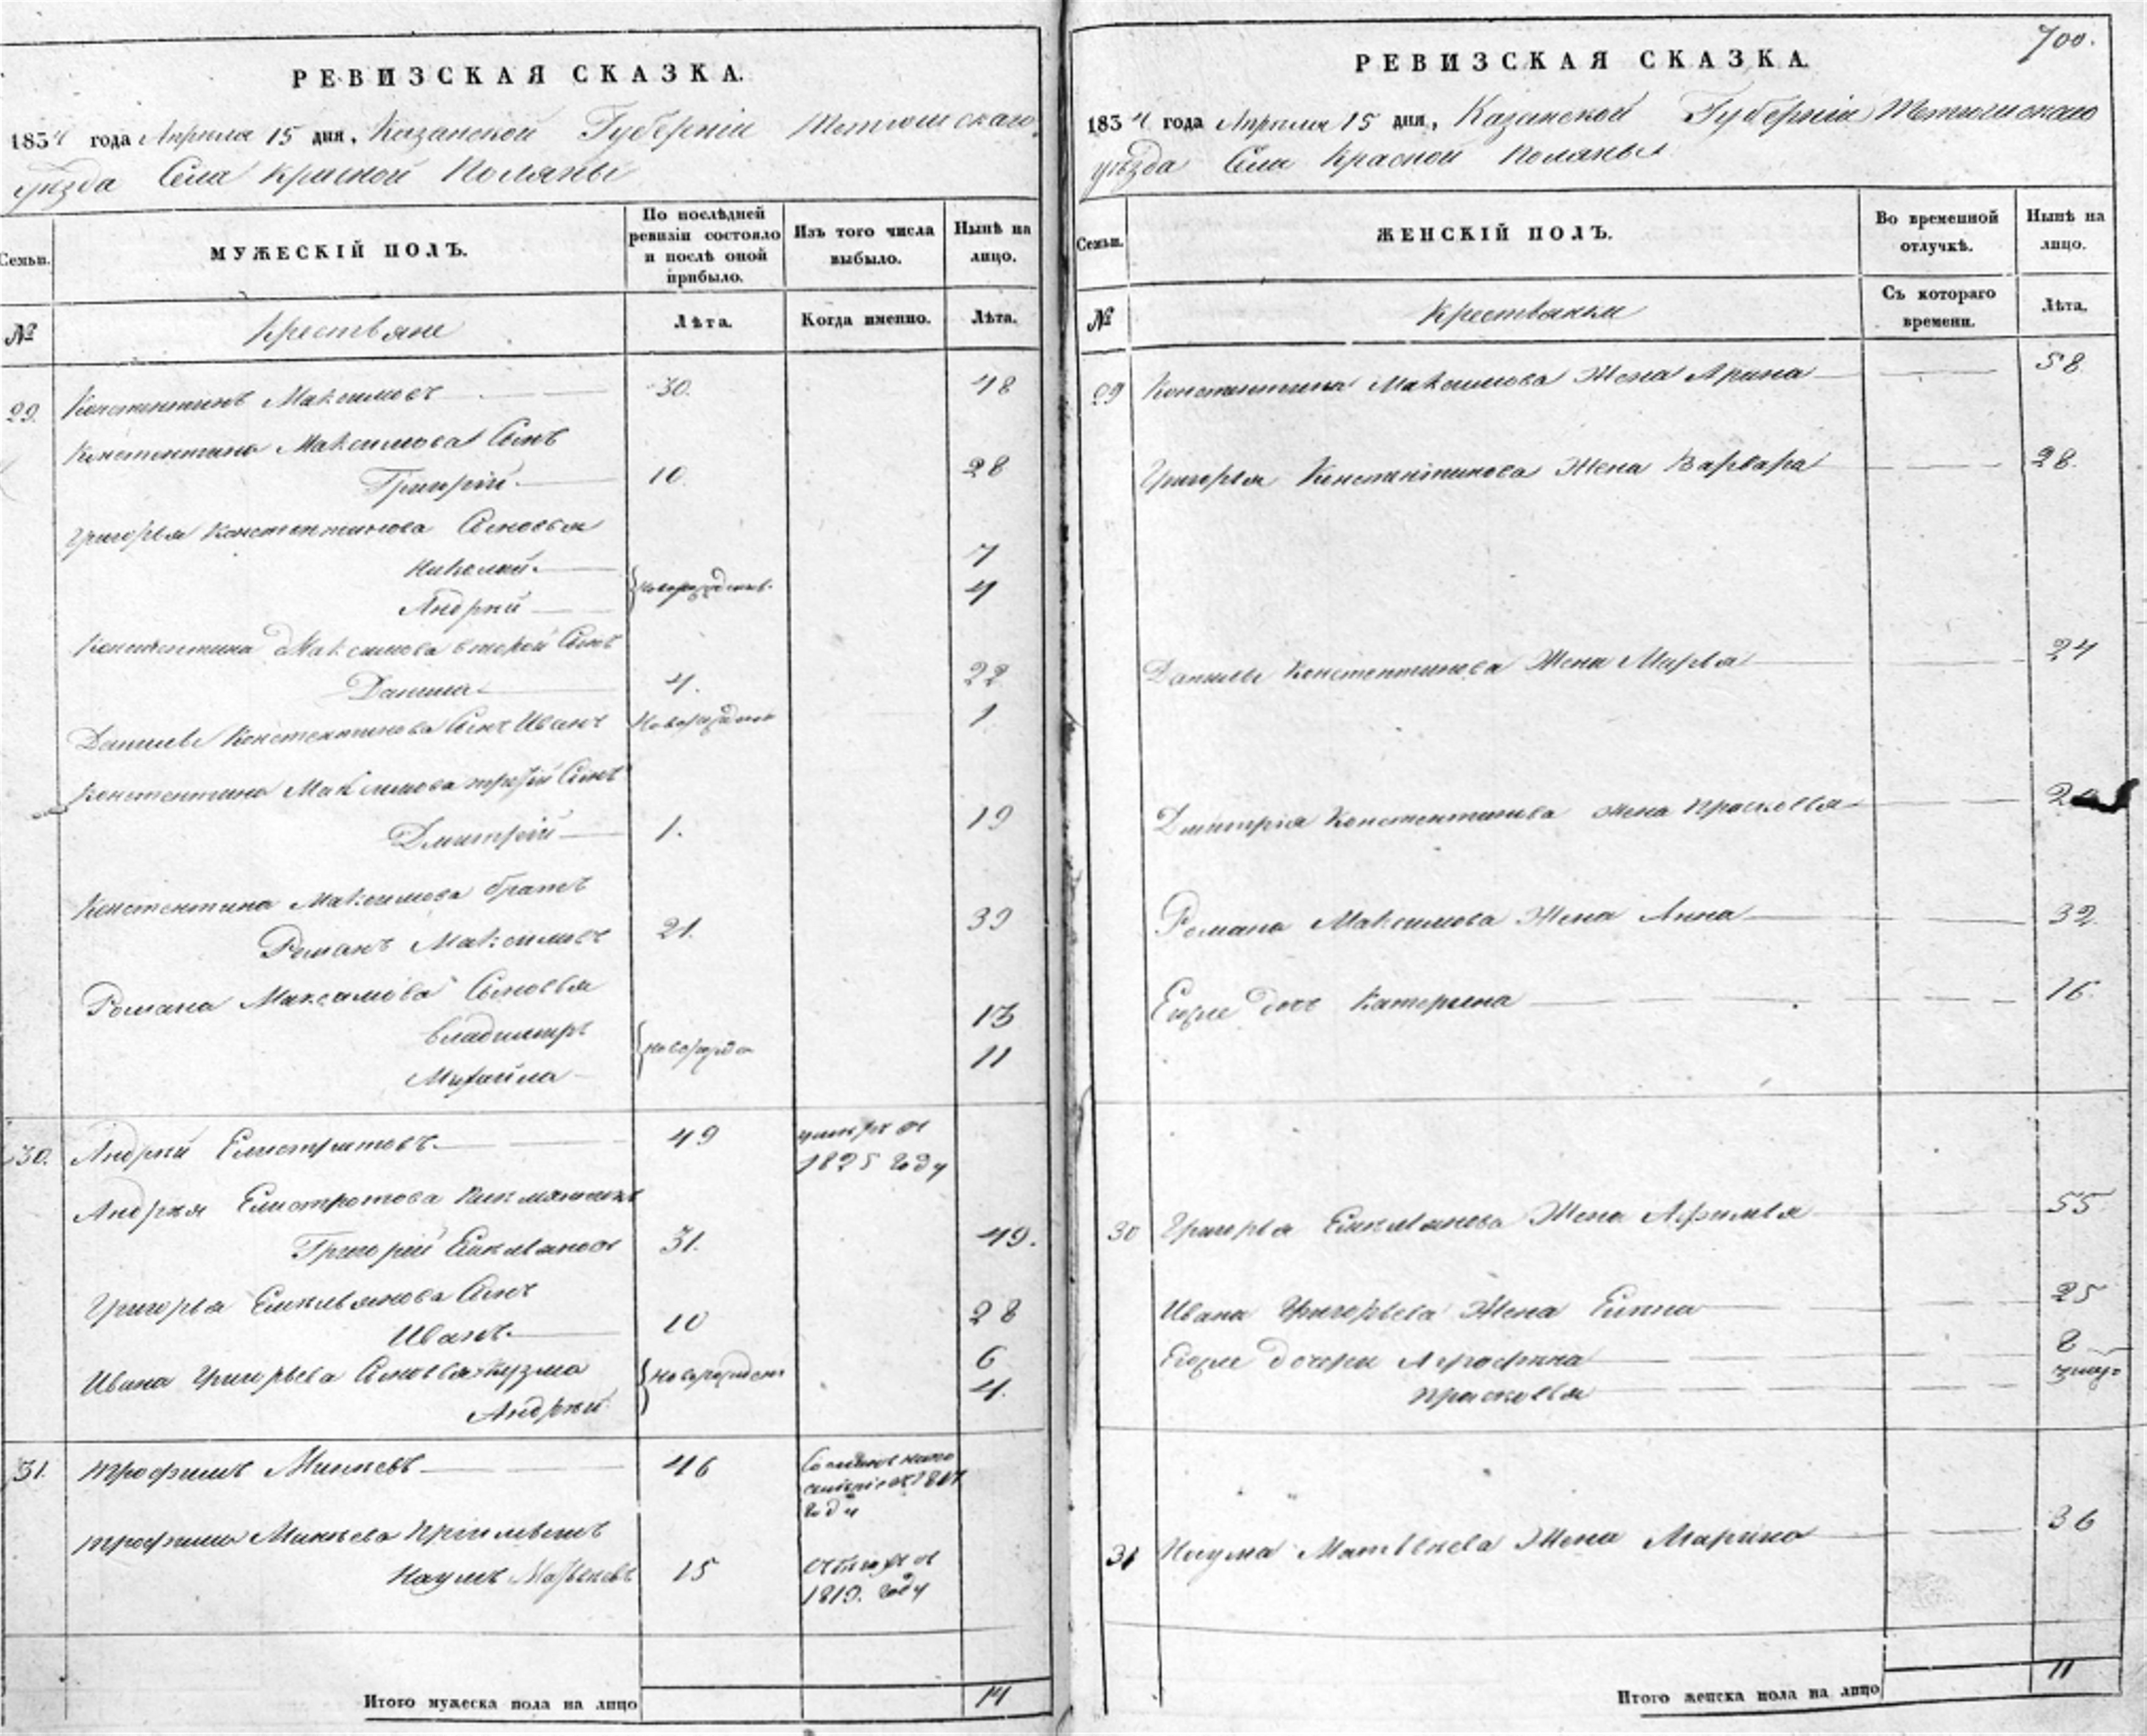 РЕВИЗСКАЯ СКАЗКА.
1834 года Апреля 15 дня, Казанской Губернiи Тетюшскаго
уѣзда Села Красной Поляны
Семьи.
МУЖЕСКIЙ ПОЛЪ.
По послѣдней
ревизiи состояло
и послѣ оной
прибыло.
Изъ того числа
выбыло.
Нынѣ на
лицо.
№
Крестьяне
Лѣта.
Когда именно.
Лѣта.
29. Констентинъ Максимовъ 30. 48
Констентина Максимова Сынъ
Григорiй 10. 28
Григорья Констентинова Сыновья
Николай 7
Андрей новорожден. 4
Констентина Максимова второй Сынъ
Данила 4. 22
Данилы Констентинова Сынъ Иванъ Новорожден 1
Констентина Максимова третiй Сынъ
Дмитрiй 1. 19
Констентина Максимова братъ
Романъ Максимовъ 21. 39
Романа Максимова Сыновья
Владимиръ 13
Михайла новорожде 11
30. Андрей Елистратовъ 49 умре въ
1825 году
Андрея Елистратова
Григорiй Емельяновъ 31. 49.
Григорья Емельянова Сынъ
Иванъ 10 28
Ивана Григорьева Сыновья Кузма новорожден 6
Андрей 4.
31. Трофимъ Минеевъ 46
году
Трофима Минеева
Наумъ Матвеевъ 15
1819. году
Итого мужеска пола на лицо 14
700.
РЕВИЗСКАЯ СКАЗКА.
1834 года Апреля 15 дня, Казанской Губернiи Тетюшскаго
уѣзда Села Красной Поляны
Семьи.
ЖЕНСКIЙ ПОЛЪ.
Во временной
отлучкѣ.
Нынѣ на
лицо.
№
Крестьянки
Съ котораго
времени.
Лѣта.
29 Констентина Максимова Жена Арина 58
Григорья Констентинова Жена Варвара 28.
Данилы Констентинова Жена Марья 24
Дмитрiя Констентинова жена Прасковья
Романа Максимова Жена Анна 32.
Еиже дочь Катерина 16.
30 Григорья Емельянова Жена Афимья 55
Ивана Григорьева Жена 25
Еиже дочери Аграфина 8
Прасковья
31 Наума Матвеева Жена Марина 36
Итого женска пола на лицо 11